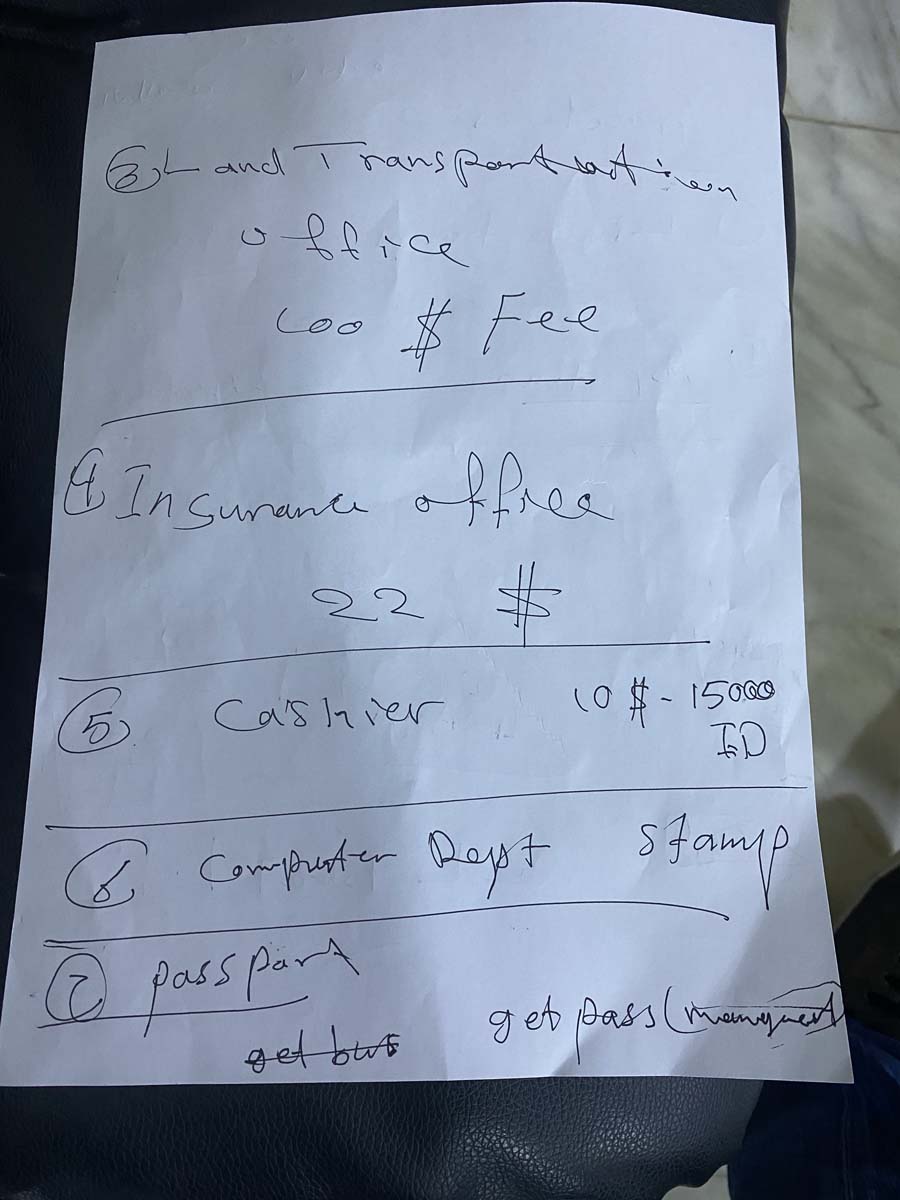 ③ Land Transportation
office
100 $ Fee
④ Insurance office
22 $
⑤ Cashier 10 $ - 15000
ID
⑥ Computer Dept Stamp
⑦ passport
get pass (
get bus